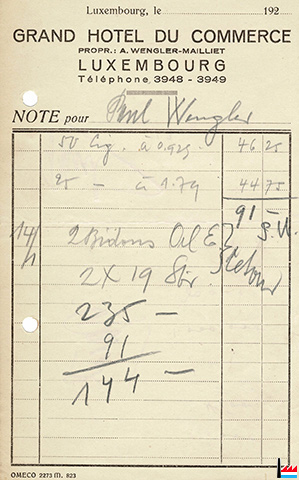 Luxembourg, le 192
GRAND HOTEL DU COMMERCE
PROPR.: A. WENGLER-MAILLIET
LUXEMBOURG
Téléphone 3948 - 3949
NOTE pour Paul Wengler
50 Cig. à 0.925 46 25
25 — à 1.79 44 75
91 —
14/1 2 Bidons Oil E
2 X 19 Str.
235 —
91
144 —
OMECO 2273 M. 823